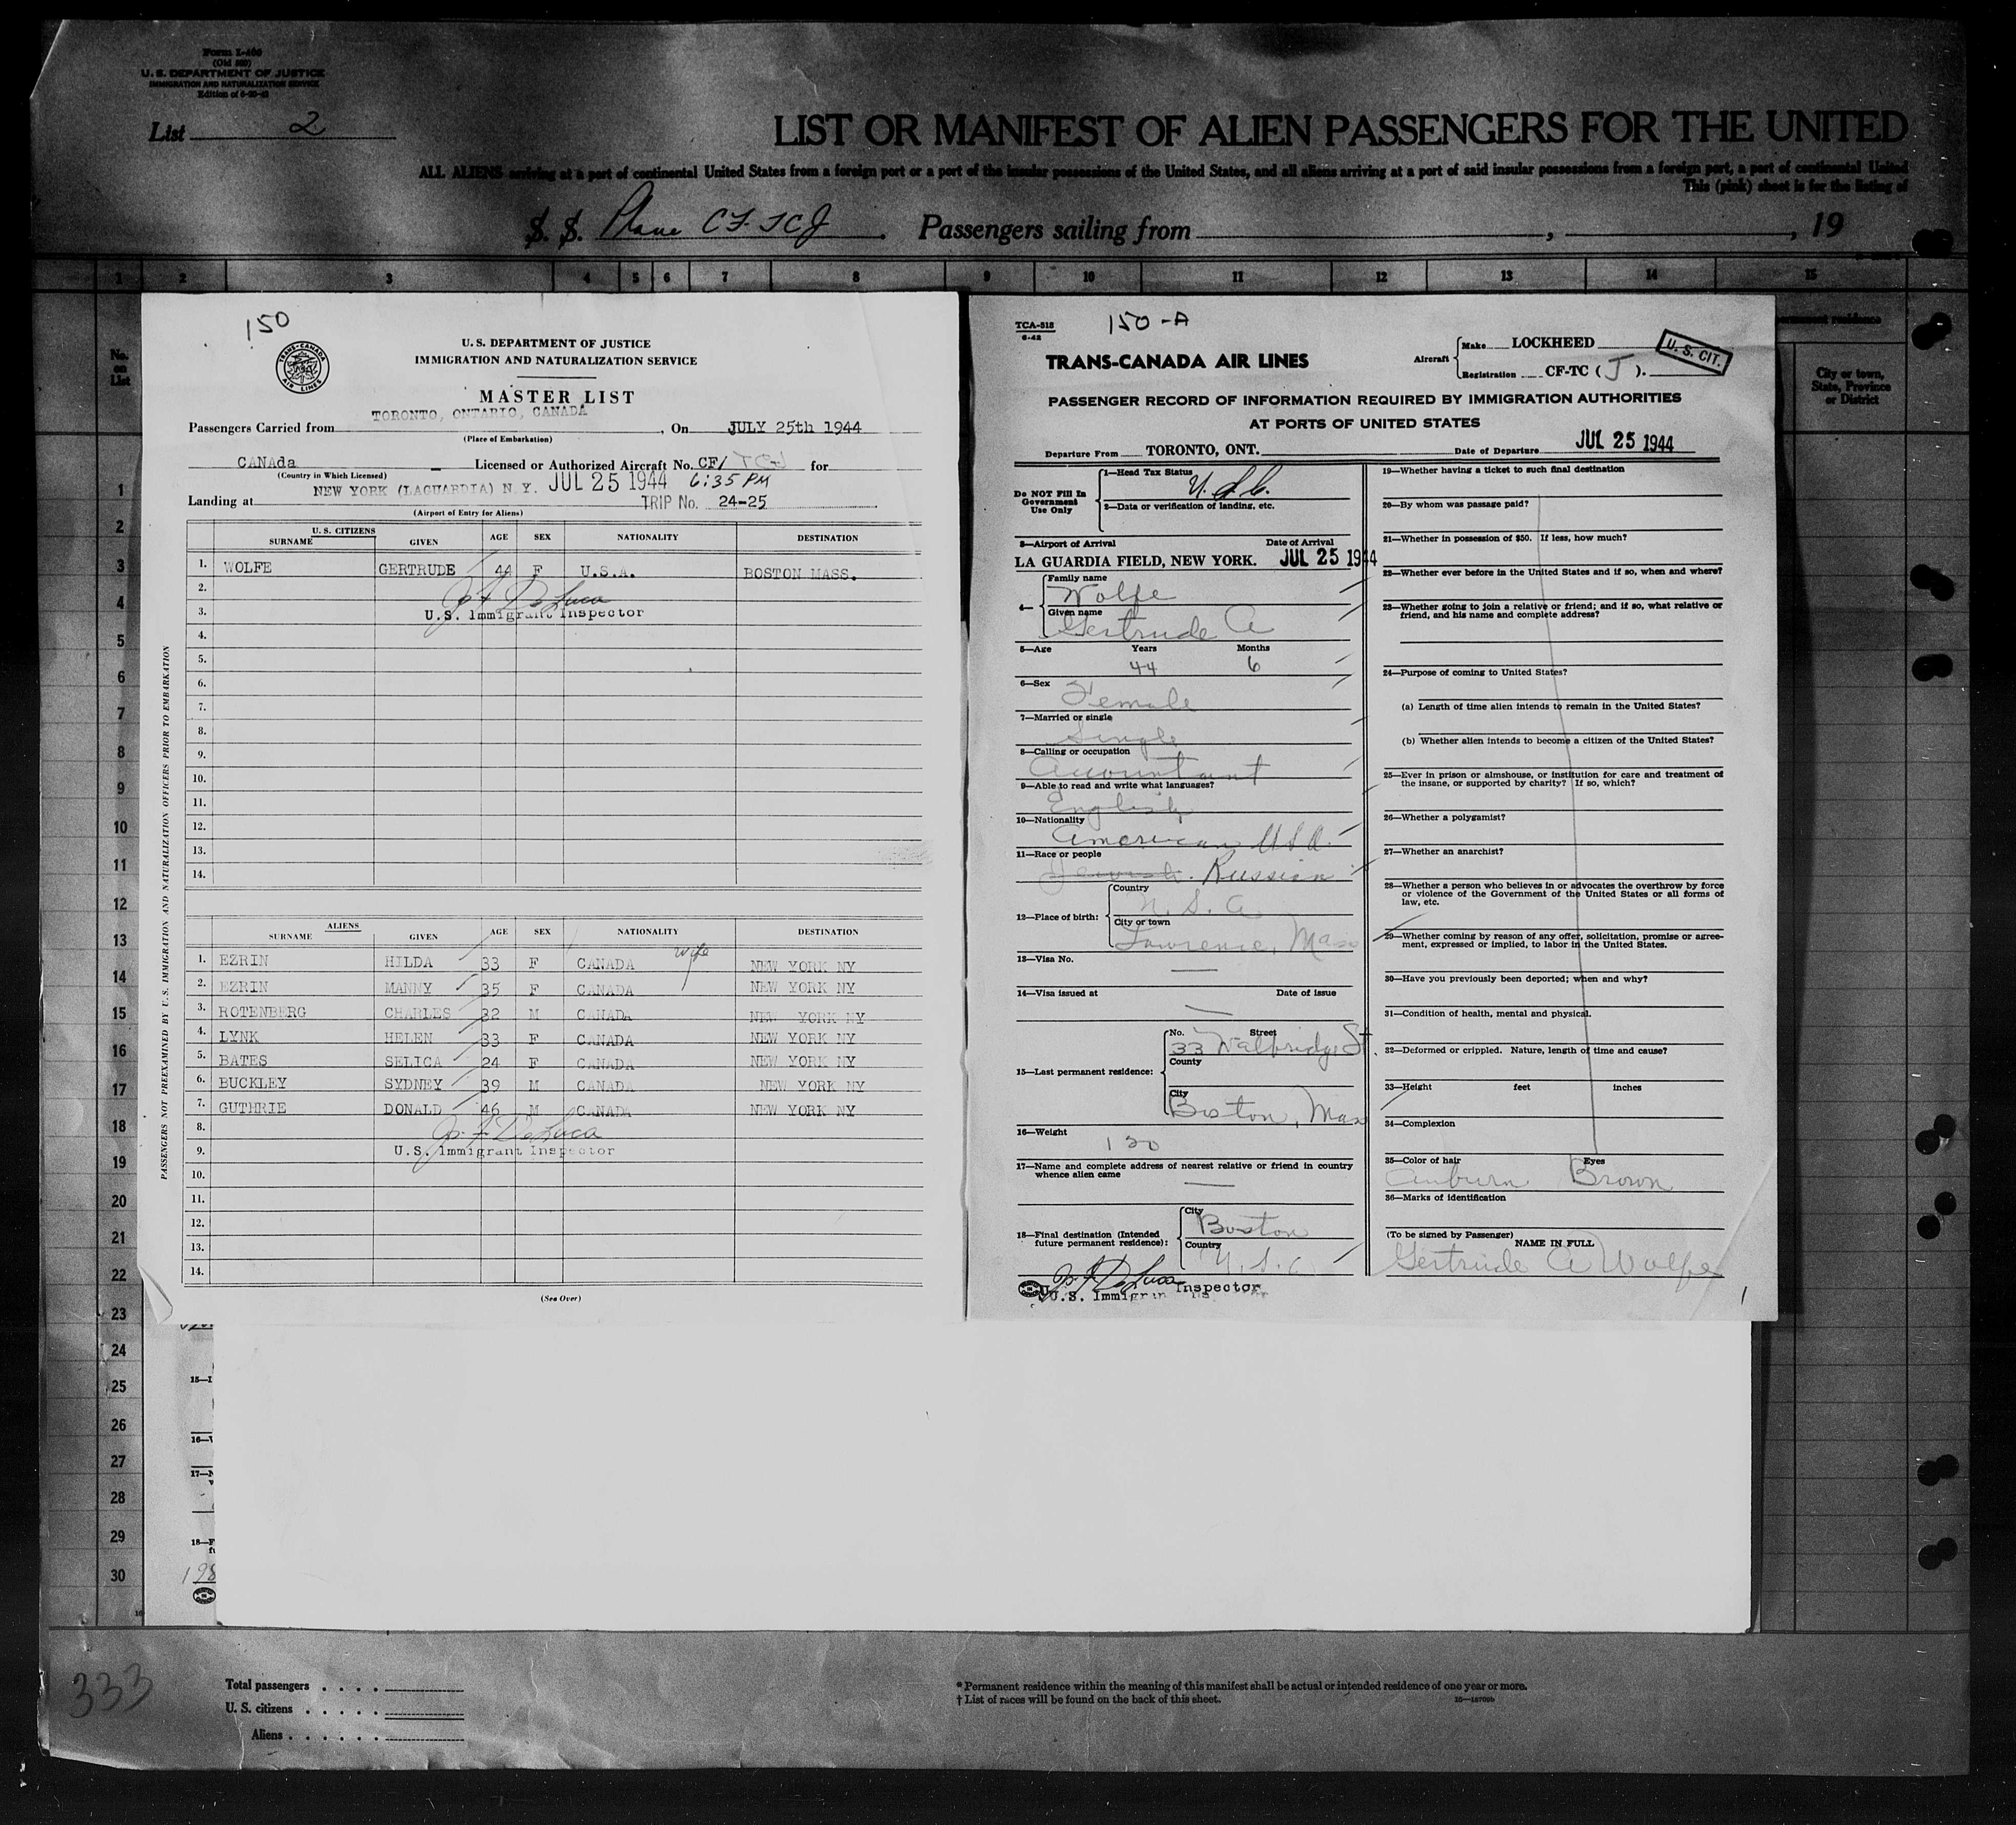 Form I-460
(Old 500)
U. S. DEPARTMENT OF JUSTICE
IMMIGRATION AND NATURALIZATION SERVICE
List 2
LIST OR MANIFEST OF ALIEN PASSENGERS FOR THE UNITED
ALL ALIENS arriving at a port of continental United States from a foreign port or a port of the insular possessions of the United States, and all aliens arriving at a port of said insular possessions from a foreign port, a port of continental United
This (pink) sheet is for the listing of
S. S. Plane CF-TCJ . Passengers sailing from , , 19
1 2 3 4 5 6 7 8 9 10 11 12 13 14 15
No. on List
permanent residence
City or town, State, Province or District
1
2
3
4
5
6
7
8
9
10
11
12
13
14
15
16
17
18
19
20
21
22
23
24
25
26
27
28
29
30
150
TRANS-CANADA AIR LINES
U. S. DEPARTMENT OF JUSTICE
IMMIGRATION AND NATURALIZATION SERVICE
MASTER LIST
TORONTO, ONTARIO, CANADA
Passengers Carried from , On JULY 25th 1944
(Place of Embarkation)
CANAda Licensed or Authorized Aircraft No. CF/ TCJ for
(Country in Which Licensed)
NEW YORK (LAGUARDIA) N.Y. JUL 25 1944 6:35 PM
Landing at TRIP No. 24-25
(Airport of Entry for Aliens)
PASSENGERS NOT PREEXAMINED BY U.S. IMMIGRATION AND NATURALIZATION OFFICERS PRIOR TO EMBARKATION
U. S. CITIZENS
SURNAME GIVEN AGE SEX NATIONALITY DESTINATION
1. WOLFE GERTRUDE 44 F U.S.A. BOSTON MASS.
2. Jo. F. DeLuca
3. U.S. Immigrant Inspector
4.
5.
6.
7.
8.
9.
10.
11.
12.
13.
14.
ALIENS
SURNAME GIVEN AGE SEX NATIONALITY DESTINATION
wife
1. EZRIN HILDA 33 F CANADA NEW YORK NY
2. EZRIN MANNY 35 F CANADA NEW YORK NY
3. ROTENBERG CHARLES 32 M CANADA NEW YORK NY
4. LYNK HELEN 33 F CANADA NEW YORK NY
5. BATES SELICA 24 F CANADA NEW YORK NY
6. BUCKLEY SYDNEY 39 M CANADA NEW YORK NY
7. GUTHRIE DONALD 46 M CANADA NEW YORK NY
8. Jo. F. DeLuca
9. U.S. Immigrant Inspector
10.
11.
12.
13.
14.
(See Over)
TCA-518
6-42
150-A
TRANS-CANADA AIR LINES
Aircraft
Make LOCKHEED
Registration CF-TC ( J ).
U. S. CIT.
PASSENGER RECORD OF INFORMATION REQUIRED BY IMMIGRATION AUTHORITIES
AT PORTS OF UNITED STATES
Departure From TORONTO, ONT. Date of Departure JUL 25 1944
Do NOT Fill In Government Use Only
1—Head Tax Status
U.S.C.
2—Data or verification of landing, etc.
3—Airport of Arrival Date of Arrival
LA GUARDIA FIELD, NEW YORK. JUL 25 1944
4—
Family name
Wolfe
Given name
Gertrude A
5—Age Years Months
44 6
6—Sex
Female
7—Married or single
Single
8—Calling or occupation
Accountant
9—Able to read and write what languages?
English
10—Nationality
American USA.
11—Race or people
Jewish. Russian
12—Place of birth:
Country
U.S.A
City or town
Lawrence, Mass
13—Visa No.
14—Visa issued at Date of issue
15—Last permanent residence:
No. Street
33 Walbridge St.
County
City
Boston, Mass
16—Weight
130
17—Name and complete address of nearest relative or friend in country
whence alien came
18—Final destination (Intended
future permanent residence):
City
Boston
Country
U.S.A
Jo. F. DeLuca
U.S. Immigrant Inspector
19—Whether having a ticket to such final destination
20—By whom was passage paid?
21—Whether in possession of $50. If less, how much?
22—Whether ever before in the United States and if so, when and where?
23—Whether going to join a relative or friend; and if so, what relative or
friend, and his name and complete address?
24—Purpose of coming to United States?
(a) Length of time alien intends to remain in the United States?
(b) Whether alien intends to become a citizen of the United States?
25—Ever in prison or almshouse, or institution for care and treatment of
the insane, or supported by charity? If so, which?
26—Whether a polygamist?
27—Whether an anarchist?
28—Whether a person who believes in or advocates the overthrow by force
or violence of the Government of the United States or all forms of
law, etc.
29—Whether coming by reason of any offer, solicitation, promise or agree-
ment, expressed or implied, to labor in the United States.
30—Have you previously been deported; when and why?
31—Condition of health, mental and physical.
32—Deformed or crippled. Nature, length of time and cause?
33—Height feet inches
34—Complexion
35—Color of hair Eyes
Auburn Brown
36—Marks of identification
(To be signed by Passenger)
NAME IN FULL
Gertrude A Wolfe
15—I
16—V
17—N
18—F
198
333
Total passengers . . . .
U. S. citizens . . . . .
Aliens . . . . . .
* Permanent residence within the meaning of this manifest shall be actual or intended residence of one year or more.
† List of races will be found on the back of this sheet.